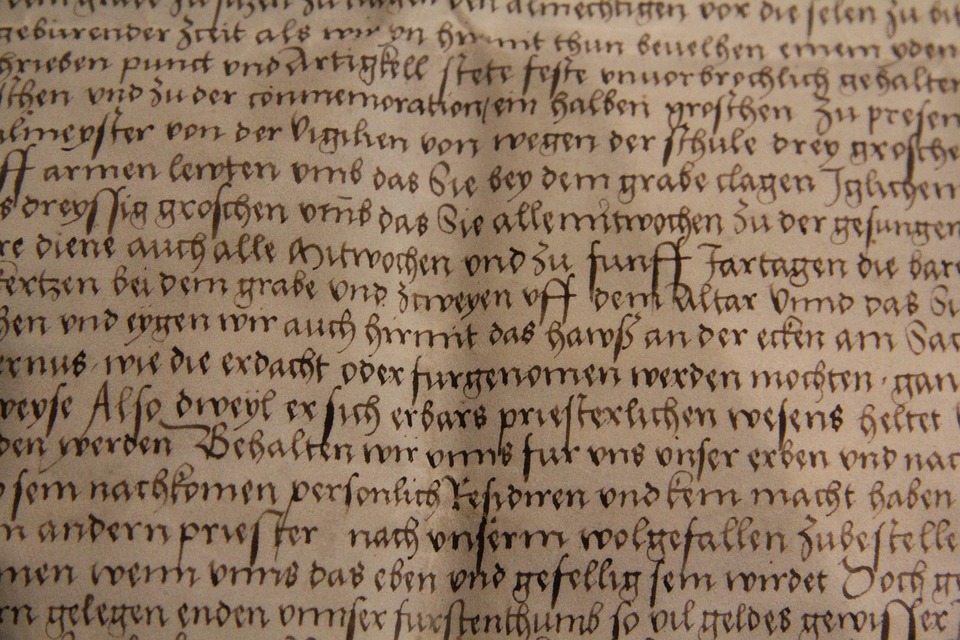 grabe zu sitzen zu singen den almechtigen vor die selen zu
geburender Zceit als wir yn hirmit thun bevelhen einem yden
punct und Artigkell stete feste unvorbrochlich gehalten
und zu der conmemoration ein halben groschen zu presen
von der Vigilien von wegen der schule drey grosche
ff armen lewten umb das Sie bey dem grabe clagen Iglichem
s dreyssig groschen umb das Sie alle mitwochen zu der gesungen
re diene auch alle Mitwochen und zu funff Jartagen die bare
kertzen bei dem grabe und zcweyen uff dem Altar Unnd das Si
und eygen wir auch hirmit das hawß an der ecken am
wie die erdacht oder furgenomen werden mochten gan
weyse Also dweyl er sich erbars priesterlichen wesens heltet
den werden Behalten wir unns fur uns unser erben und nac
sein nachkomen personlich Residiren und kein macht haben
n andern priester nach unserm wolgefallen zubestelle
men wenn unns das eben und gefellig sein wirdet Doch ge
rn gelegen enden unnser furstenthumb so vil geldes gewisser